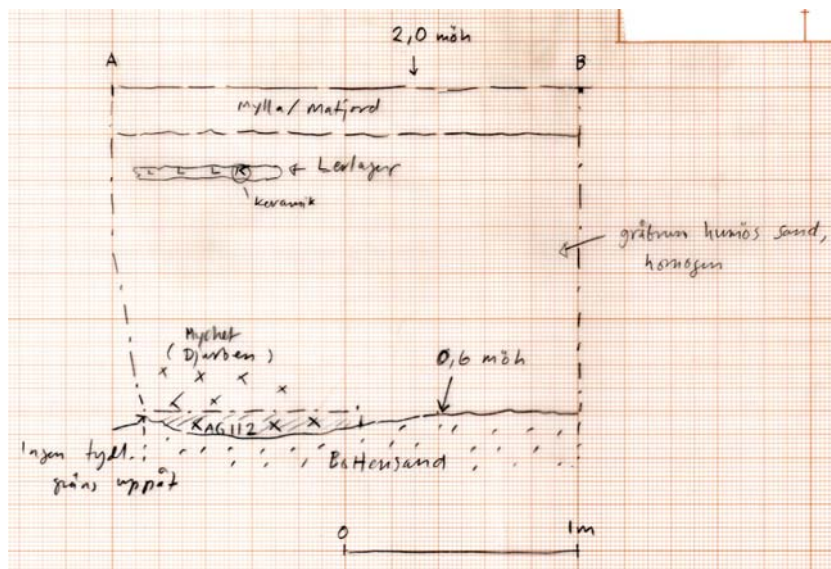 2,0 möh
A
B
Mylla/Matjord
L L L K
← Lerlager
keramik
gråbrun humös sand,
homogen
Mycket
(Djurben)
0,6 möh
AG112
Ingen tydl.
gräns uppåt
Bottensand
0
1m